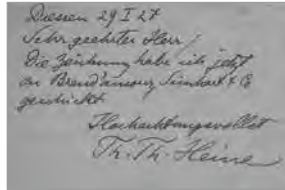 Diessen 29 I 27
Sehr geehrter Herr!
Die Zeichnung habe ich jetzt
an Brend'amour Simhart & Co
geschickt.
Hochachtungsvollst
Th. Th. Heine